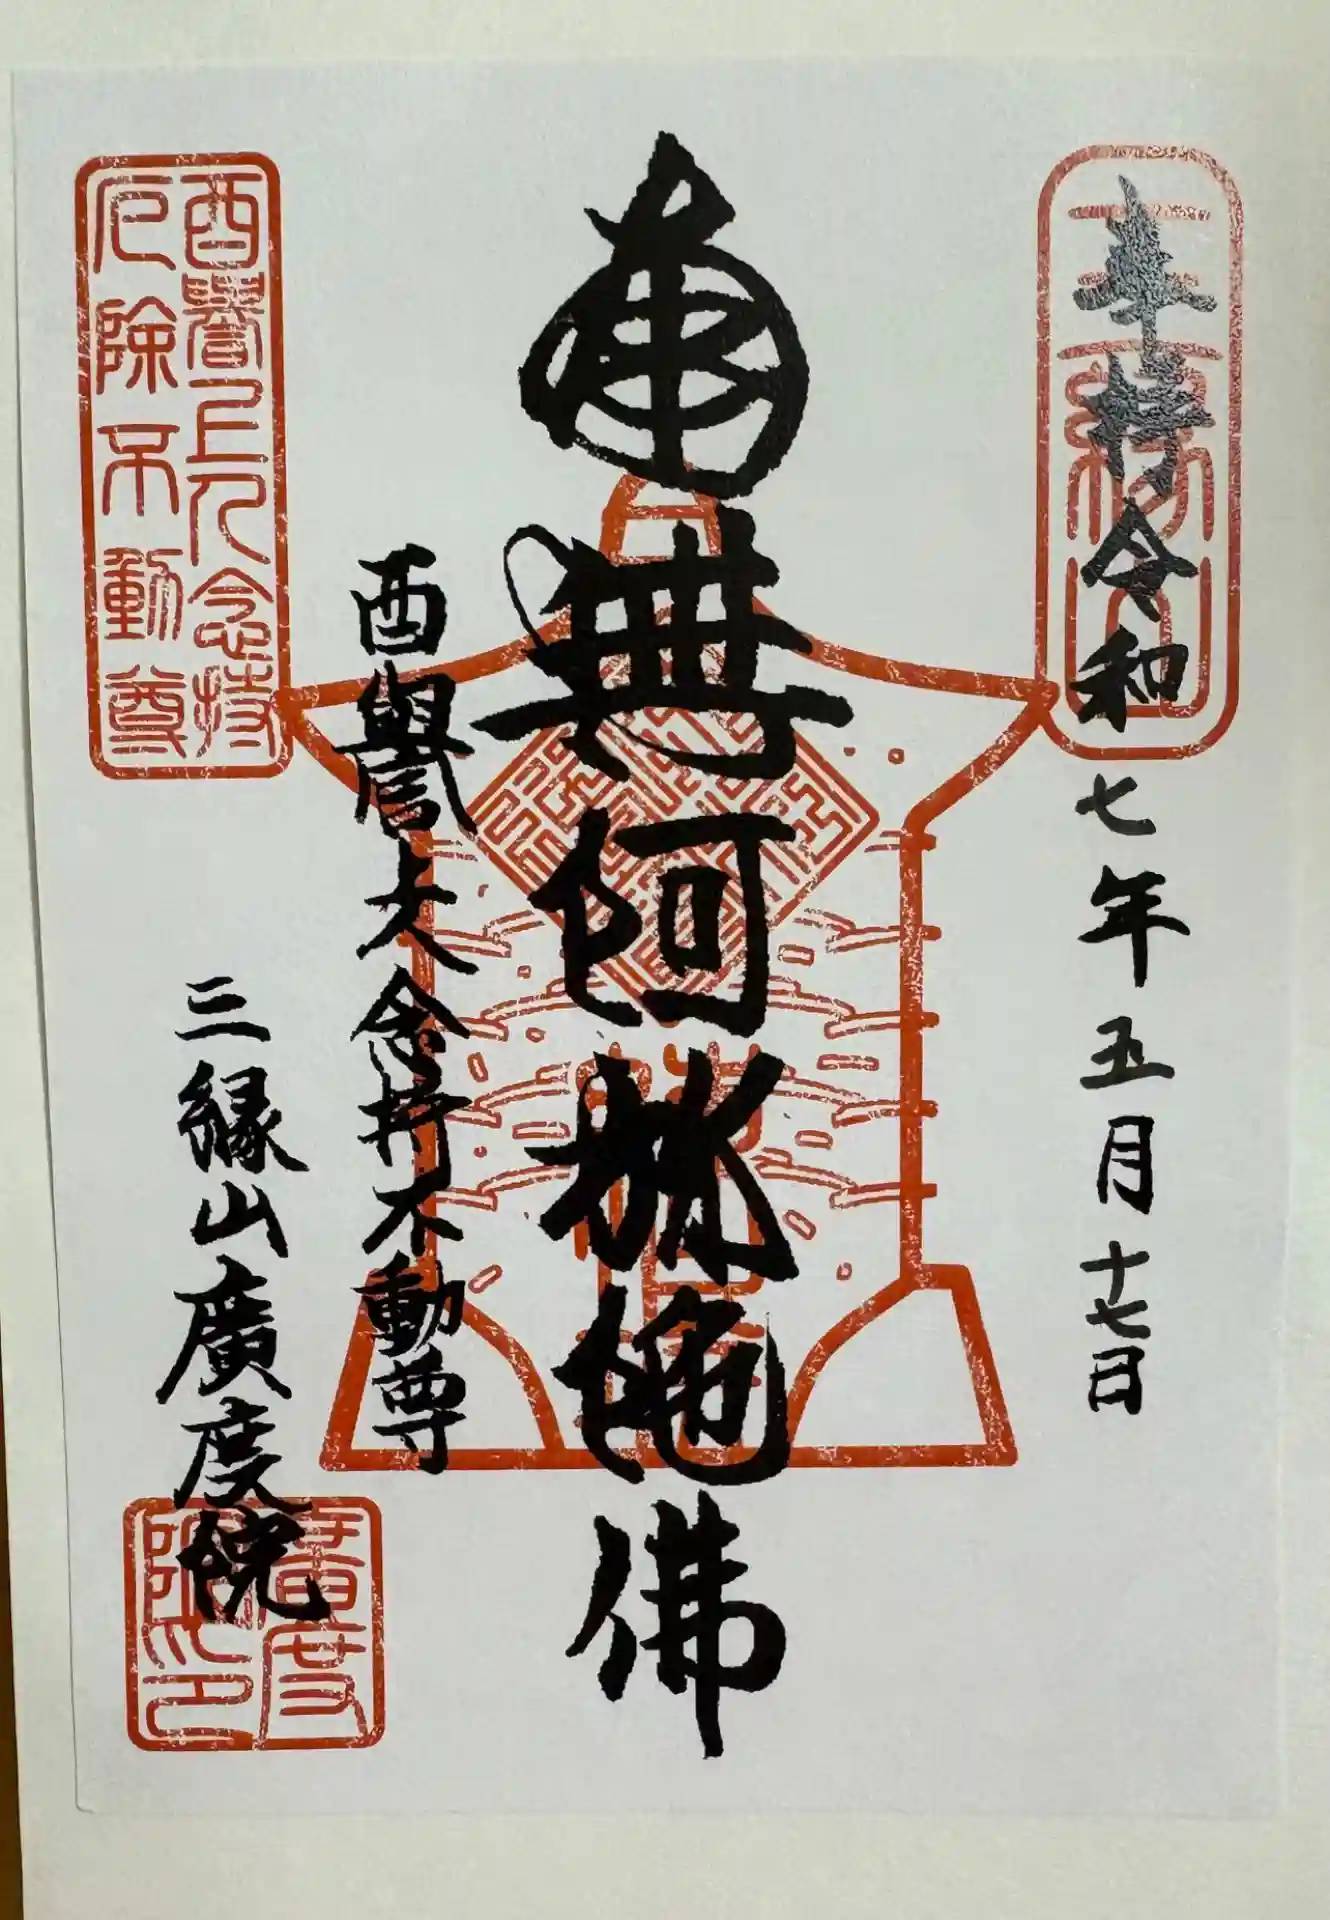 奉拝 令和七年五月十七日
三縁山
南無阿弥陀佛
酉譽大念持不動尊
酉譽上人念持
厄除不動尊
三縁山廣度院
廣度院印